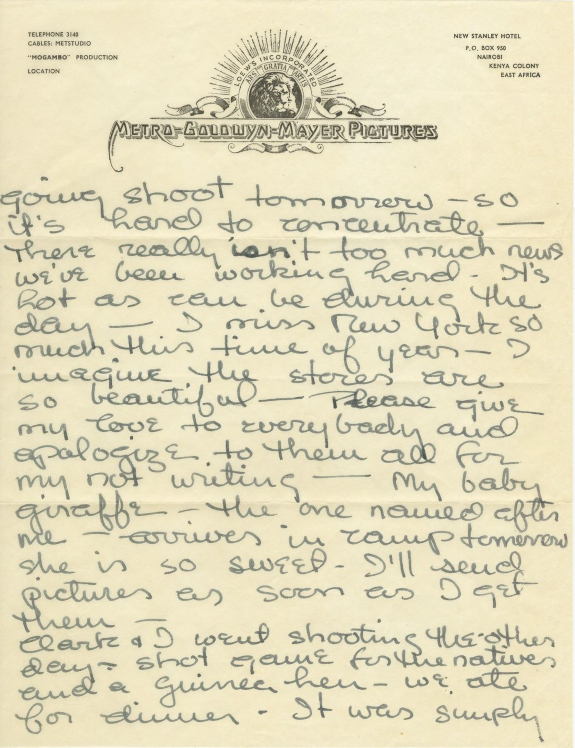 TELEPHONE 3140
CABLES: METSTUDIO
"MOGAMBO" PRODUCTION
LOCATION
NEW STANLEY HOTEL
P.O. BOX 950
NAIROBI
KENYA COLONY
EAST AFRICA
LOEWS INCORPORATED
ARS GRATIA ARTIS
METRO-GOLDWYN-MAYER PICTURES
going shoot tomorrow – so
it's hard to concentrate —
there really isn't too much news
we've been working hard. It's
hot as can be during the
day — I miss New York so
much this time of year – I
imagine the stores are
so beautiful — Please give
my love to everybody and
apologize to them all for
my not writing — My baby
giraffe – the one named after
me – arrives in camp tomorrow
she is so sweet. I'll send
pictures as soon as I get
them —
Clark & I went shooting the other
day – shot game for the natives
and a Guinea hen – we ate
for dinner. It was simply